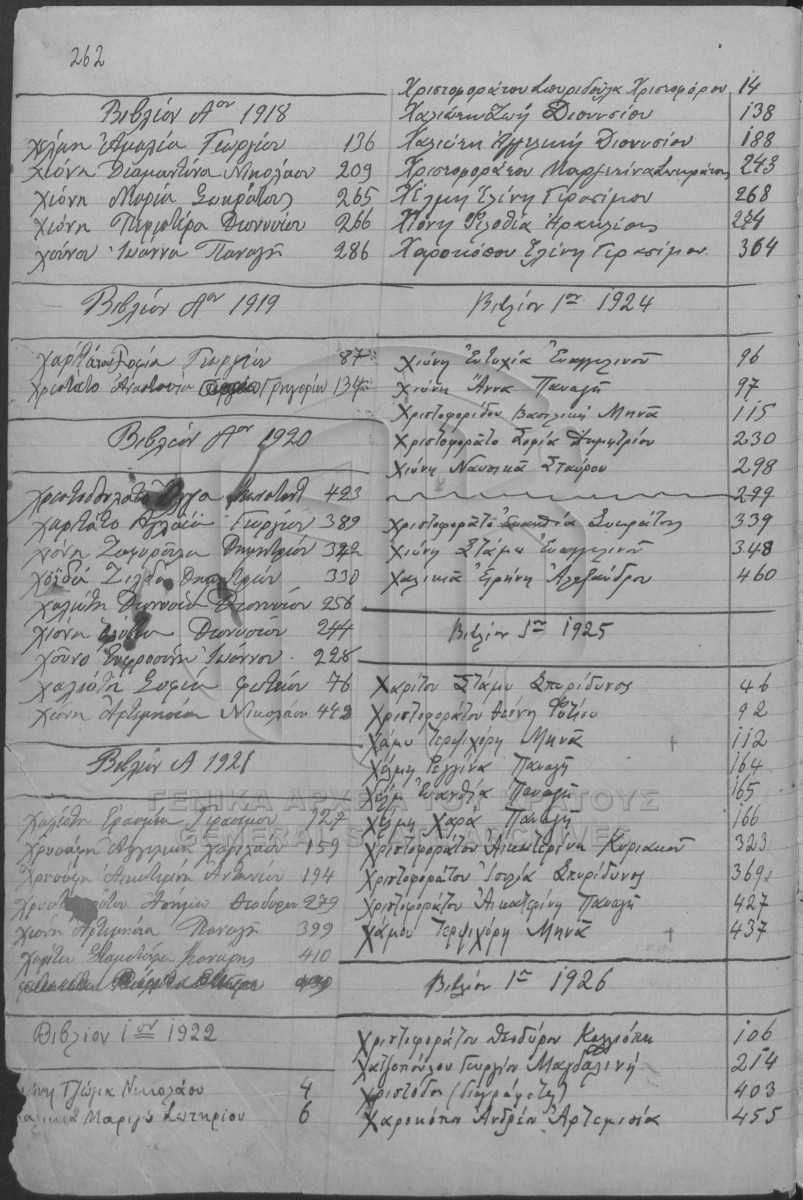 262
Βιβλίον Αον 1918
Χέλμη Αμαλία Γεωργίου 136
Χιόνη Διαμαντίνα Νικολάου 209
Χιόνη Μαρία Σωκράτους 265
Χιόνη Περιστέρα Διονυσίου 266
Χούνα Ιωάννα Παναγή 286
Βιβλίον Αον 1919
Χαρίτάτου Σοφία Γεωργίου 87
Χριστάτο Αναστασία Γρηγορίου 134
Βιβλίον Αον 1920
Χριστοδουλάτο 423
Χαριτάτο Αγλαΐα Γεωργίου 389
Χιόνη Ζαφυρούλα Δημητρίου 342
Δημητρίου 330
Χαλιώτη Διονυσία Διονυσίου 256
Χιόνη Διονυσίου 244
Χούνο Ευφροσύνη Ιωάννου 228
Χαλιώτη Σοφία Φωτείου 76
Χιόνη Αρτεμησία Νικολάου 442
Βιβλίον Α 1921
Χαλιώτη Ερασμία Γερασίμου 127
Χρυσάφη Αγγελική 159
Χρυσάφη Αικατερίνη Αντωνίου 194
Ασήμω Θεοδώρου 279
Χιόνη Αρτεμησία Παναγή 399
Χαρίτου Σταματούλα 410
Βιβλίον 1ον 1922
Τζώμια Νικολάου 4
Μαριγώ Σωτηρίου 6
Χριστοφοράτου Σπυριδούλα Χριστοφόρου 14
Χαλιώτη Ζωή Διονυσίου 138
Χαλιώτη Αγγελική Διονυσίου 188
Χριστοφοράτου Μαρμετίνα Σωκράτους 243
Χέλμη Ελένη Γερασίμου 268
Χιόνη Φιλοθέα Ηρακλέους 274
Χαροκόπου Ελένη Γερασίμου 364
Βιβλίον 1ον 1924
Χιόνη Ευτυχία Ευαγγελινού 96
Χιόνη Άννα Παναγή 97
Χριστοφορίδου Βασιλική Μηνά 115
Χριστοφοράτο Σοφία Δημητρίου 230
Χιόνη Ναυσικά Σταύρου 298
299
Χριστοφοράτο Ευανθία Σωκράτους 339
Χιόνη Στάμω Ευαγγελινού 348
Χαλικιά Ερήνη Αλεξάνδρου 460
Βιβλίον 1ον 1925
Χαρίτου Στάμω Σπυρίδωνος 46
Χριστοφοράτου Φωτίου 92
Χάμου Τερψιχόρη Μηνά + 112
Χέλμη Ρεγγίνα Παναγή 164
Χέλμη Ευανθία Παναγή 165
Χέλμη Χαρά Παναγή 166
Χριστοφοράτου Αικατερίνη Κυριακού 323
Χριστοφοράτου Σπυρίδωνος 369
Χριστοφοράτου Αικατερίνη Παναγή 427
Χάμου Τερψιχόρη Μηνά + 437
Βιβλίον 1ον 1926
Χριστοφοράτου Θεοδώρου Καλλιόπη 106
Χατζοπούλου Γεωργίου Μαγδαλινή 214
Χριστόδη (διεγράφετη) 403
Χαροκόπου Ανδρέου Αρτεμισία 455
ΓΕΝΙΚΑ ΑΡΧΕΙΑ ΤΟΥ ΚΡΑΤΟΥΣ
GENERAL STATE ARCHIVES